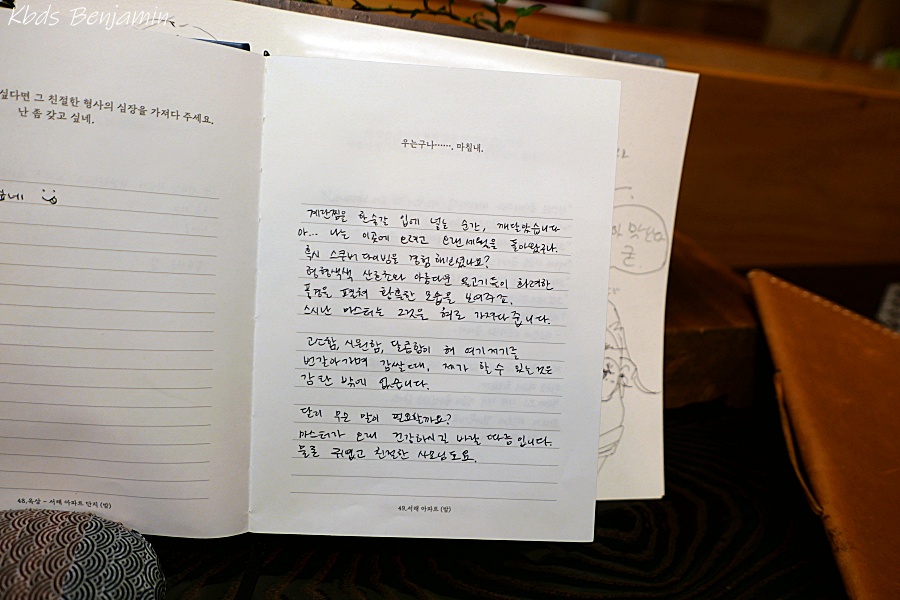 Kbds Benjamin
싶다면 그 친절한 형사의 심장을 가져다 주세요.
난 좀 갖고 싶네.
네
48.옥상 - 서래 아파트 단지 (밤)
우는구나……. 마침내.
계란찜을 한숟갈 입에 넣는 순간, 깨달았습니다
아... 나는 이곳에 오려고 오랜세월을 돌아왔구나.
혹시 스쿤버 다이빙을 경험해보셨나요?
형형색색 산호초와 아름다운 물고기들이 화려한
풍경을 펼쳐 황홀한 모습을 보여주죠.
스시난 마스터는 그것을 혀로 가져다줍니다.
고소함, 시원함, 달콤함이 혀 여기저기를
번갈아가며 감쌀때, 제가 할 수 있는 것은
감탄 밖에 없습니다.
달리 무슨 말이 필요할까요?
마스터가 오래 건강하시길 바랄 따름입니다.
물론 귀엽고 친절한 사모님도요.
49.서래 아파트 (밤)